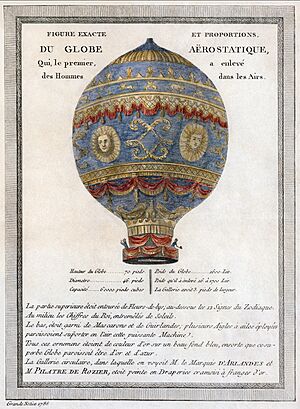 FIGURE EXACTE ET PROPORTIONS,
DU GLOBE AËROSTATIQUE,
Qui, le premier, a enlevé
des Hommes dans les Airs.
Hauteur du Globe 70 pieds Poids du Globe 1600 liv.
Diametre 46. pieds Poids qu'il a enlevé 16 à 1700 liv.
Capacité 60000 pieds cubes La Gallerie avoit 3. pieds de largeur.
La partie superieure étoit entourée de Fleurs-de-lys; au-dessous les 12 Signes du Zodiaque.
Au milieu les Chiffres du Roi, entremêlés de Soleils.
Le bas, étoit garni de Mascarons et de Guirlandes; plusieurs Aigles à ailes éployées
paroissoient suporter en l'air cette puissante Machine.
Tous ces ornemens étoient de couleur d'or sur un beau fond bleu, ensorte que ce su-
perbe Globe paroissoit être d'or et d'azur.
La Gallerie circulaire, dans laquelle on voyoit M. le Marquis D'ARLANDES et
M. PILATRE DE ROZIER, étoit peinte en Draperies cramoisi à franges d'or.
1786